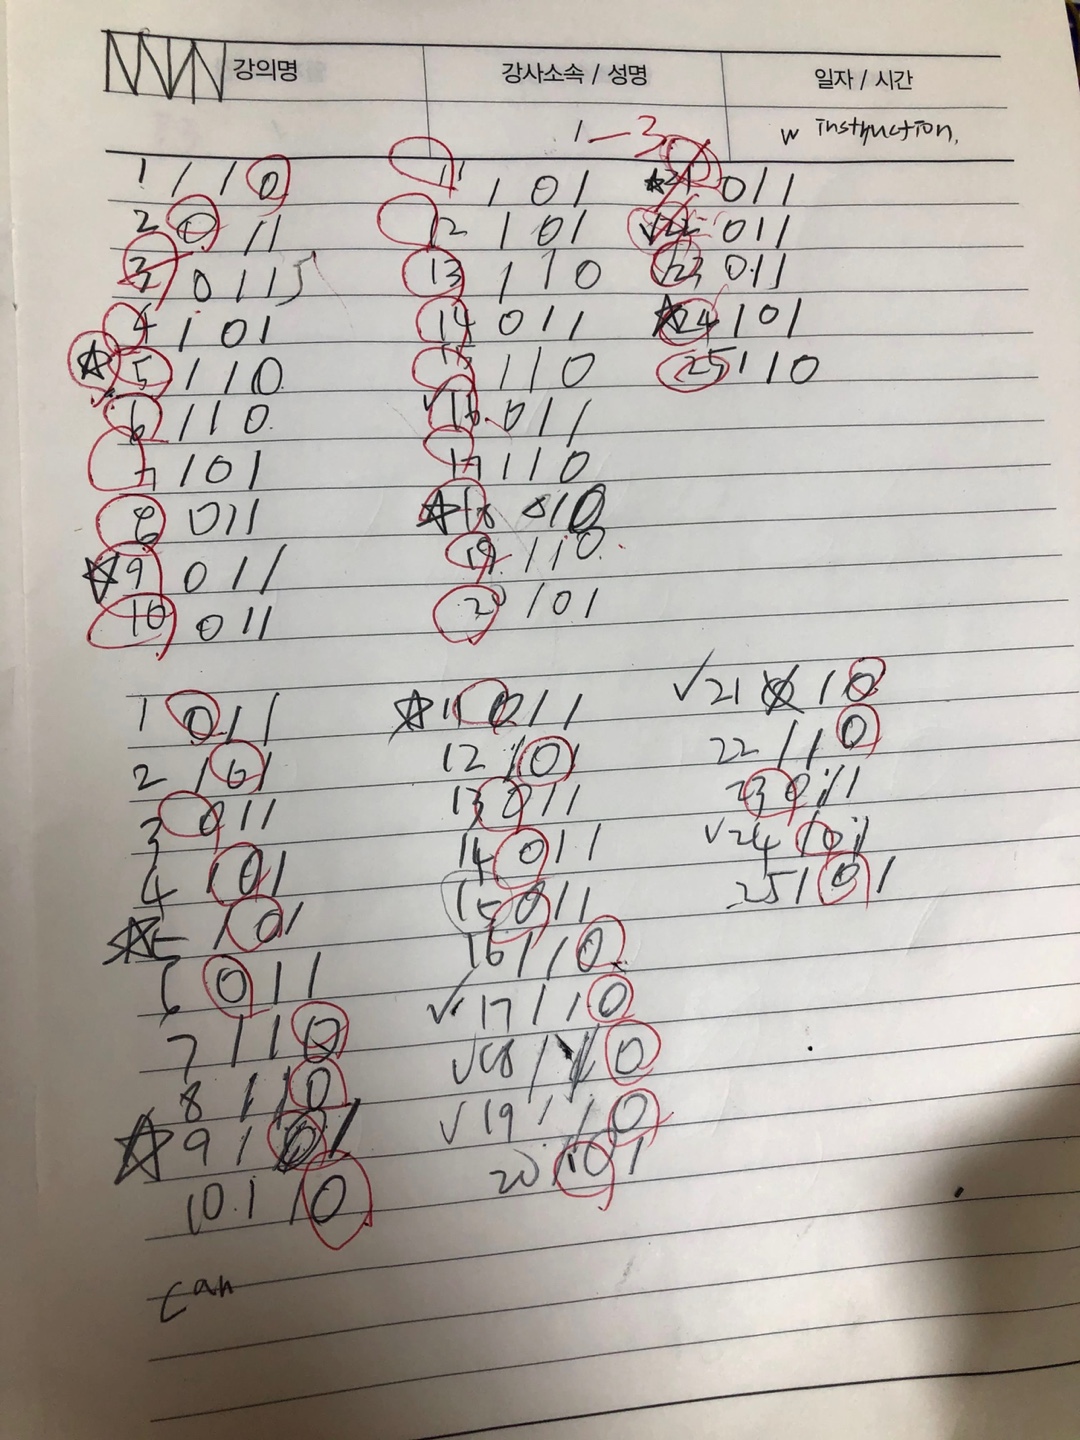 강의명 강사소속 / 성명 일자 / 시간
1-3 w instruction.
1 1 1 0
2 0 1 1
3 0 1 1
4 1 0 1
5 1 1 0
6 1 1 0
7 1 0 1
8 0 1 1
9 0 1 1
10 0 1 1
11 1 0 1
12 1 0 1
13 1 1 0
14 0 1 1
15 1 1 0
16 0 1 1
17 1 1 0
18 1 0
19 1 1 0
20 1 0 1
21 0 1 1
22 0 1 1
23 0 1 1
24 1 0 1
25 1 1 0
1 0 1 1
2 1 0 1
3 0 1 1
4 1 0 1
5 1 0 1
6 0 1 1
7 1 1 0
8 1 1 0
9 1 0 1
10. 1 1 0
11 0 1 1
12 1 0 1
13 0 1 1
14 0 1 1
15 0 1 1
16 1 1 0
17 1 1 0
18 1 1 0
19 1 1 0
20 1 0 1
21 1 0
22 1 1 0
23 0 1 1
24 1 0 1
25 1 0 1
can